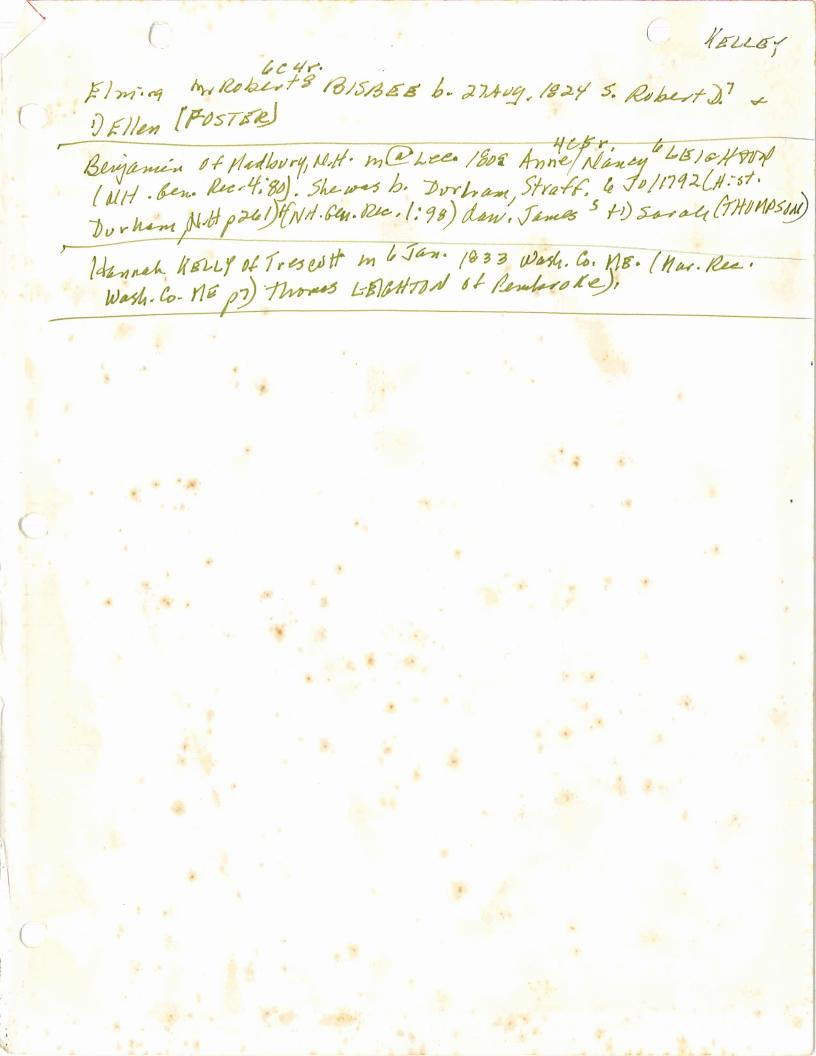 KELLEY
6C4r.
Elmira m Robert 8 BISBEE b. 27 Aug. 1824 s. Robert D. 7 +
1) Ellen [FOSTER]
4C5r.
Benjamin of Madbury, N.H. m @ Lee. 1802 Anne/Nancy 6 LEIGHTON
(NH. Gen. Rec. 4:80). She was b. Durham, Straff. 6 Jul 1792 (Hist.
Durham, N.H p261) (NH. Gen. Rec. 1:98) dau. James 5 + 1) Sarah (THOMPSON)
Hannah KELLY of Trescott m 6 Jan. 1833 Wash. Co. ME. (Mar. Rec.
Wash. Co. ME p7) Thomas LEIGHTON of Pembroke).